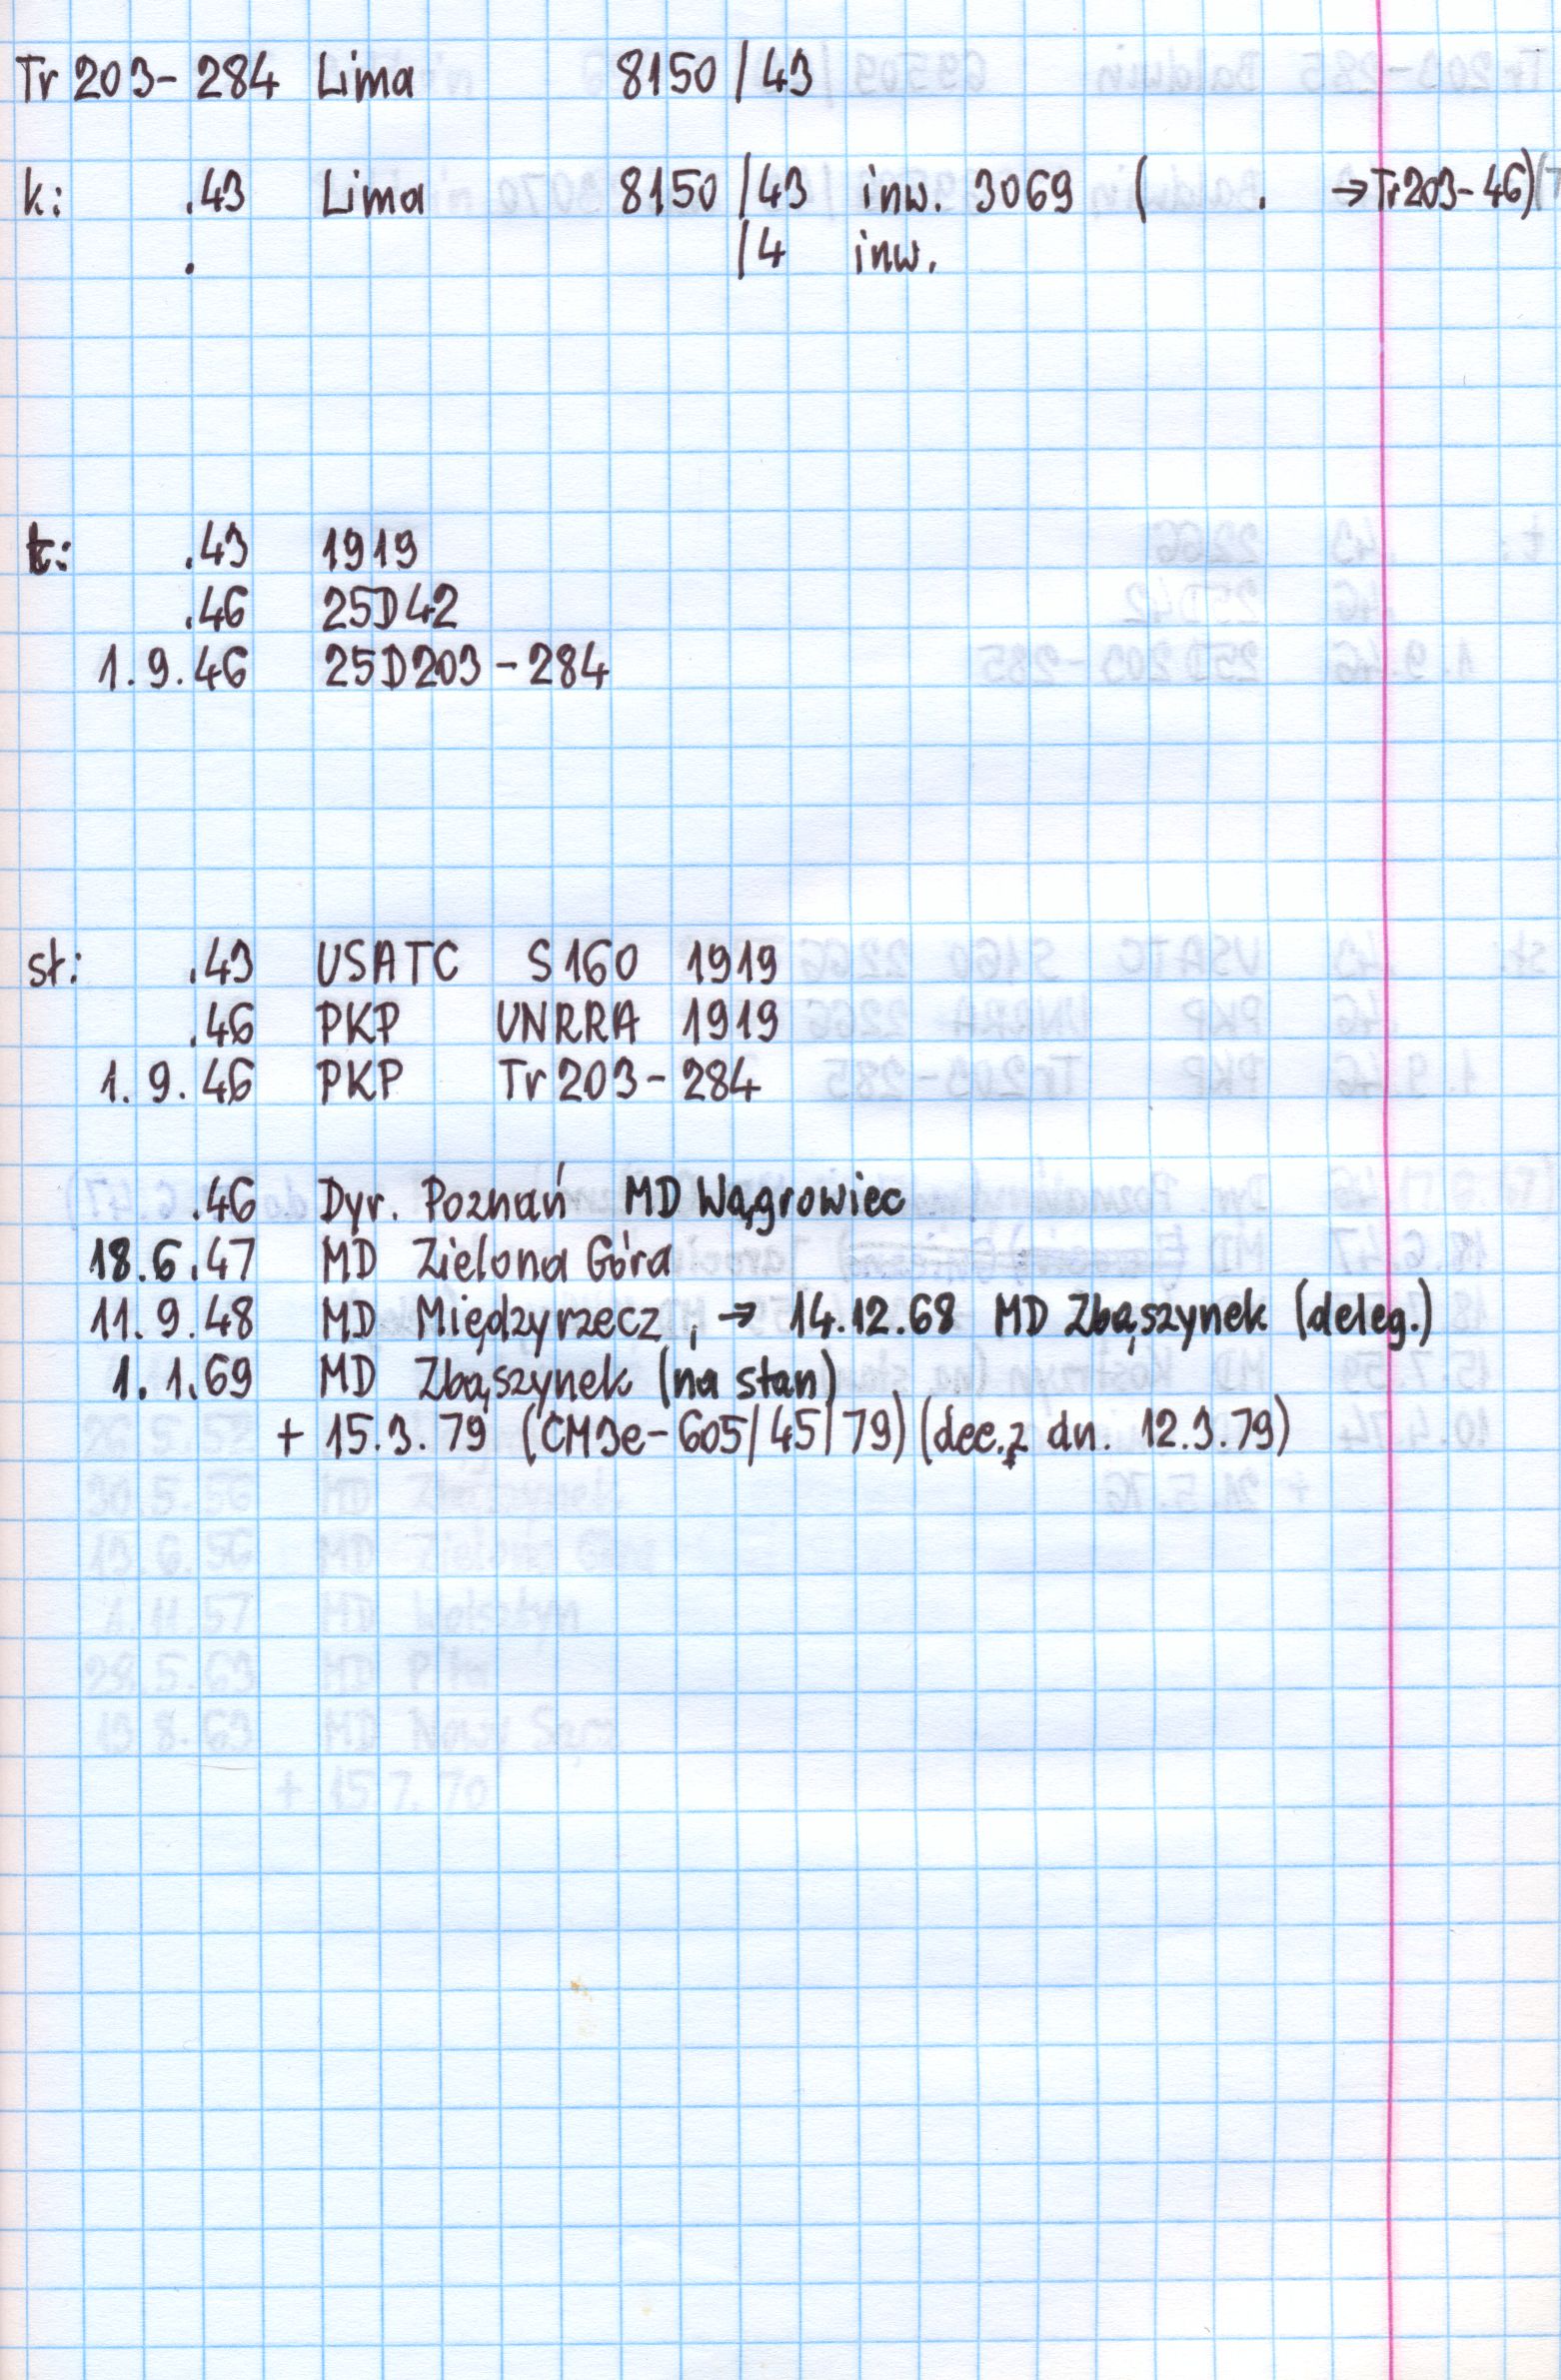 Tr 203-284 Lima 8150/43
k: .43 Lima 8150/43 inw. 3069 ( . →Tr203-46)
. /4 inw.
t: .43 1919
.46 25D42
1.9.46 25D203-284
st: .43 USATC S160 1919
.46 PKP UNRRA 1919
1.9.46 PKP Tr203-284
.46 Dyr. Poznań MD Wągrowiec
18.6.47 MD Zielona Góra
11.9.48 MD Międzyrzecz, → 14.12.68 MD Zbąszynek (deleg.)
1.1.69 MD Zbąszynek (na stan)
+ 15.3.79 (CM3e-605/45/79) (dec. z dn. 12.3.79)